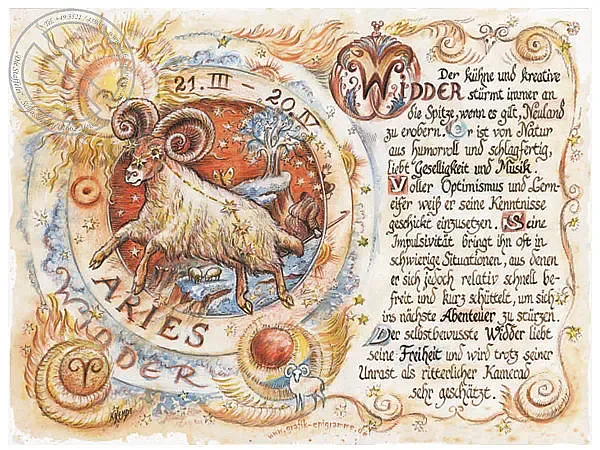 21. III - 20. IV
ARIES
WIDDER
WIDDER
Der kühne und kreative
stürmt immer an
die Spitze, wenn es gilt, Neuland
zu erobern. Er ist von Natur
aus humorvoll und schlagfertig,
liebt Geselligkeit und Musik.
Voller Optimismus und Lern-
eifer weiß er seine Kenntnisse
geschickt einzusetzen. Seine
Impulsivität bringt ihn oft in
schwierige Situationen, aus denen
er sich jedoch relativ schnell be-
freit und kurz schüttelt, um sich
ins nächste Abenteuer zu stürzen.
Der selbstbewusste Widder liebt
seine Freiheit und wird trotz seiner
Unrast als ritterlicher Kamerad
sehr geschätzt.
www.grafik-epigramme.de